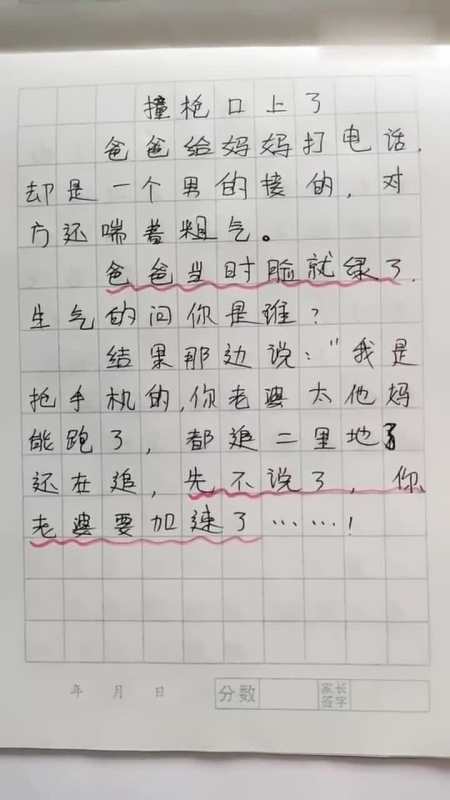 撞枪口上了
爸爸给妈妈打电话,
却是一个男的接的,对
方还喘着粗气。
爸爸当时脸就绿了.
生气的问你是谁?
结果那边说:"我是
抢手机的,你老婆太他妈
能跑了,都追二里地了
还在追,先不说了,你
老婆要加速了……!
年 月 日 分数 家长签字